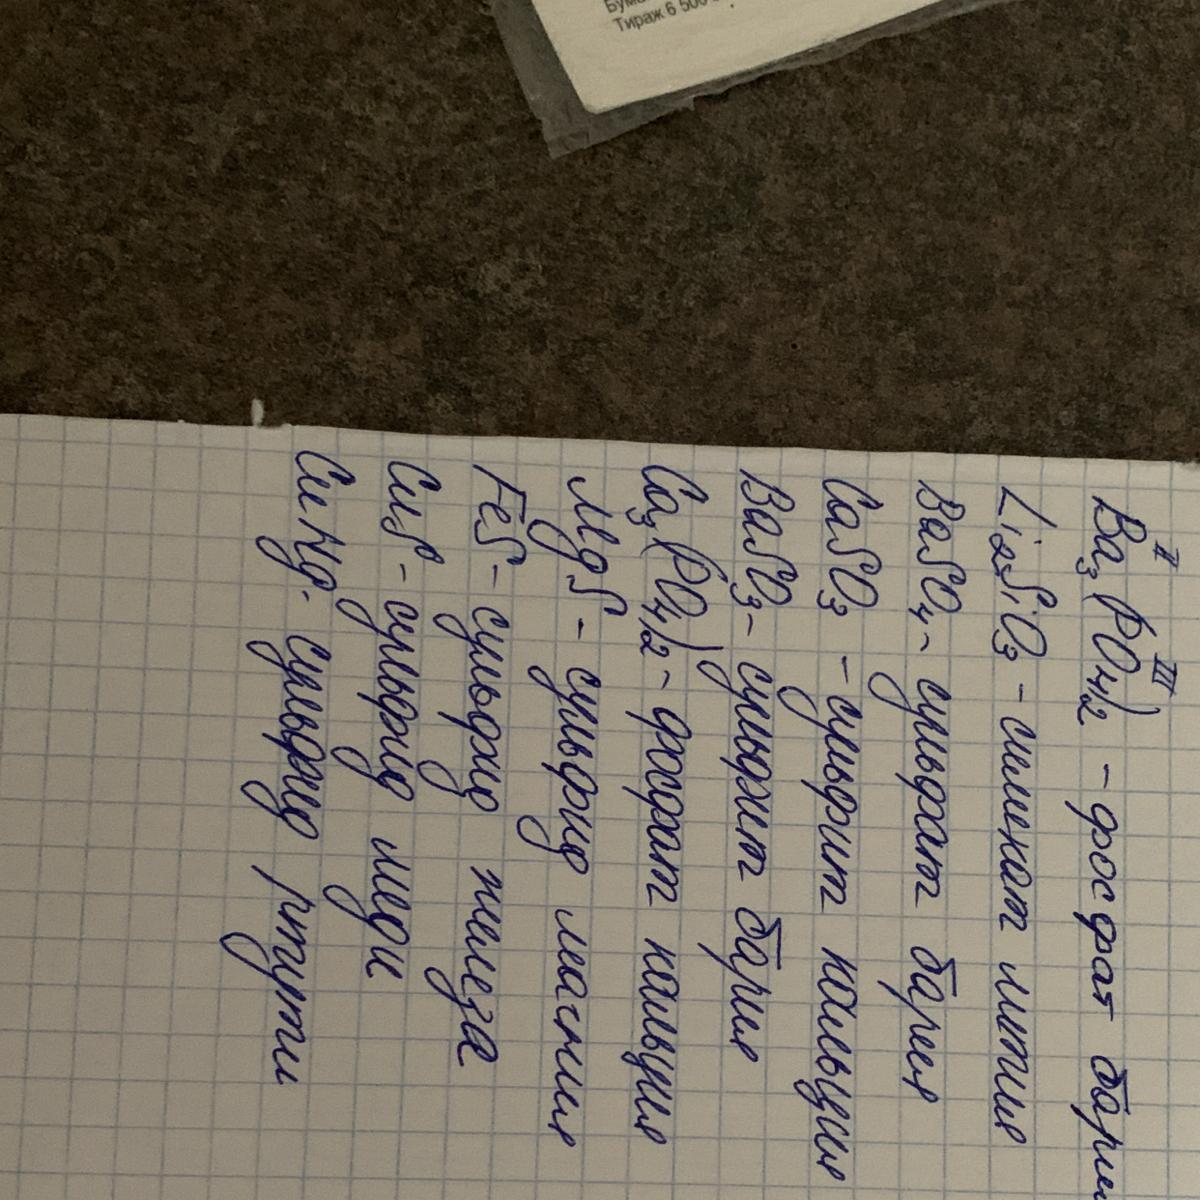 Бума
Тираж 6 500
Ba₃(PO₄)₂ - фосфат бария
II III
Li₂SiO₃ - силикат лития
BaSO₄ - сульфат бария
CaSO₃ - сульфит кальция
BaSO₃ - сульфит бария
Ca₃(PO₄)₂ - фосфат кальция
MgS - сульфид магния
FeS - сульфид железа
CuS - сульфид меди
CuHg - сульфид ртути